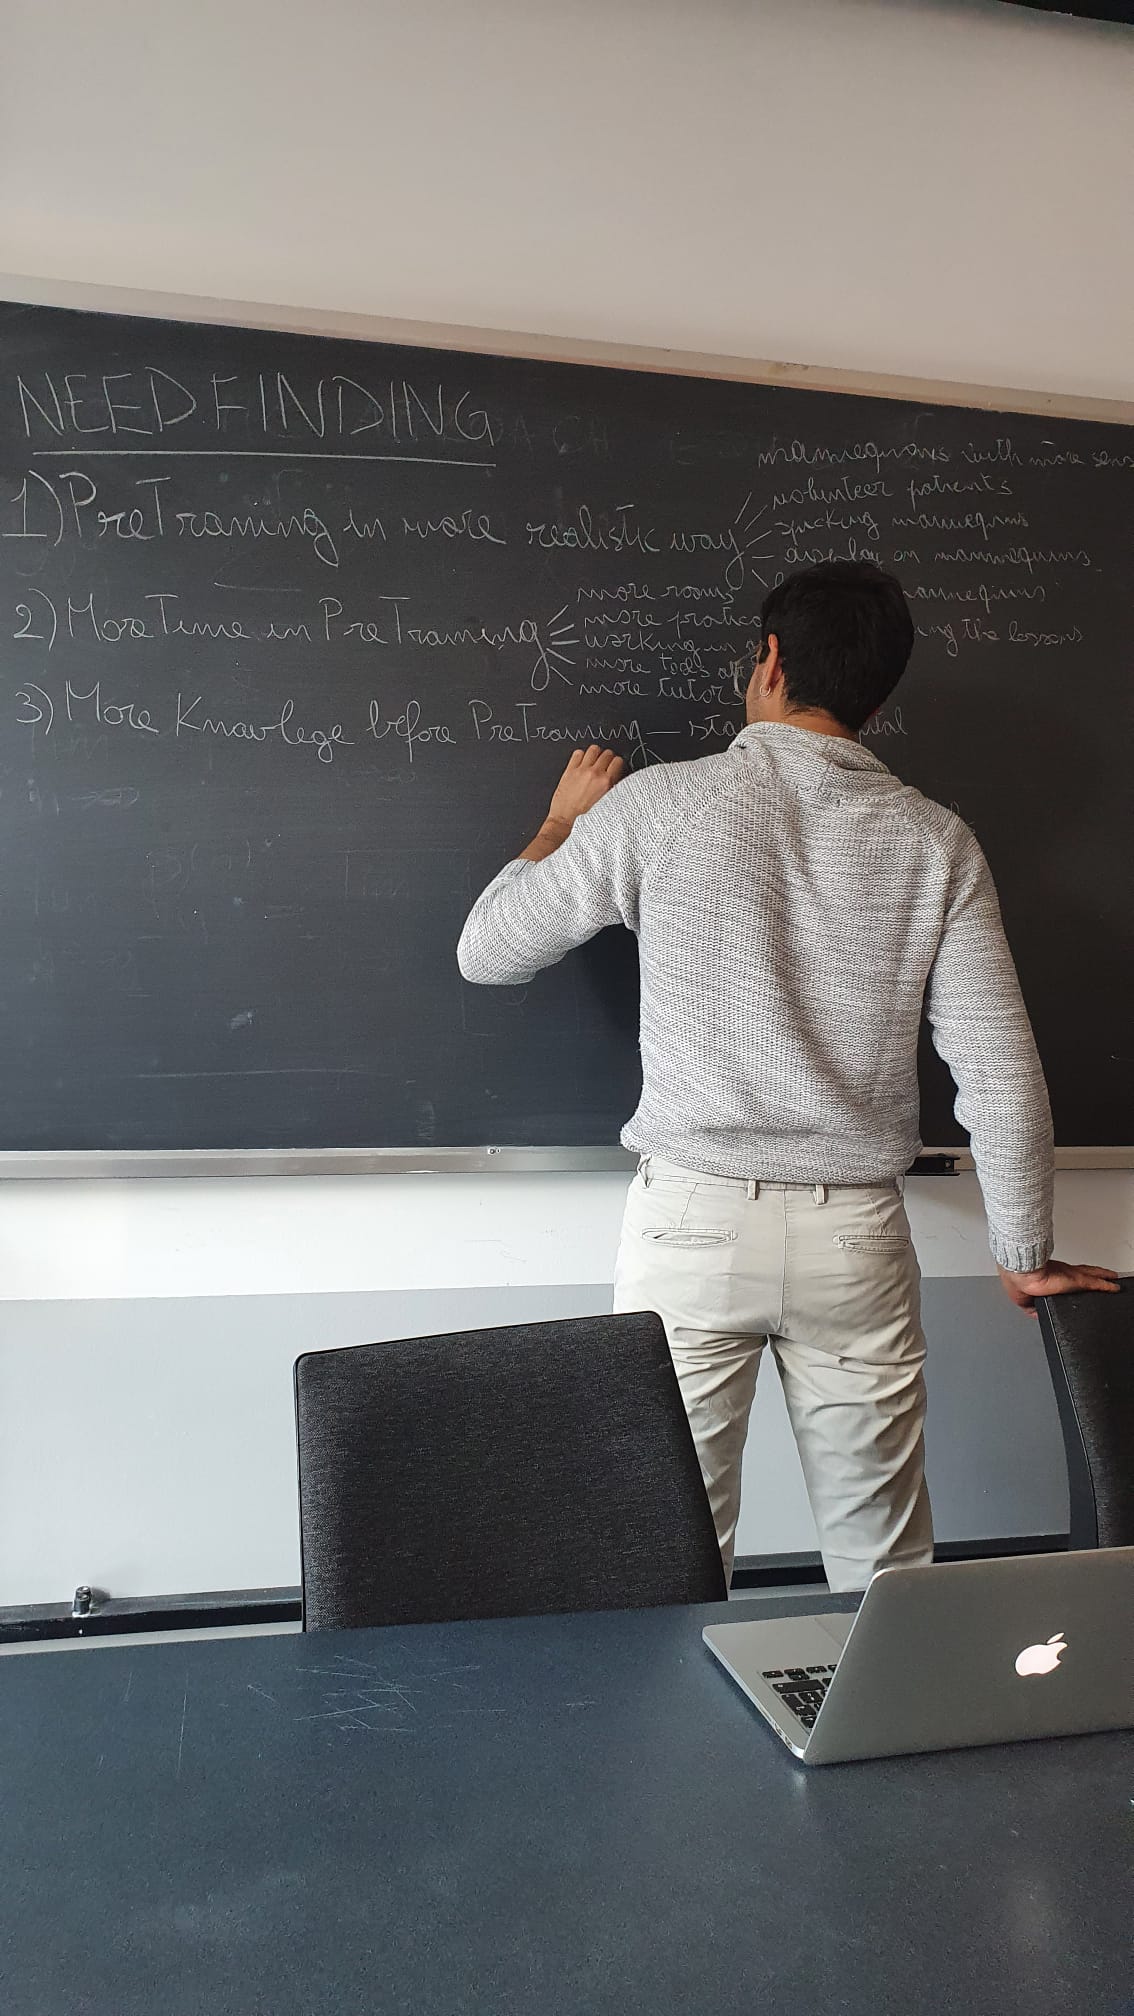 NEEDFINDING
1) PreTraining in more realistic way
mannequins with more sens
volunteer patients
speaking mannequins
display on mannequins
mannequins
2) More Time in PreTraining
more rooms
more pratic
working in
ing the lessons
more tools
more tutors
3) More Knowlege before PreTraining